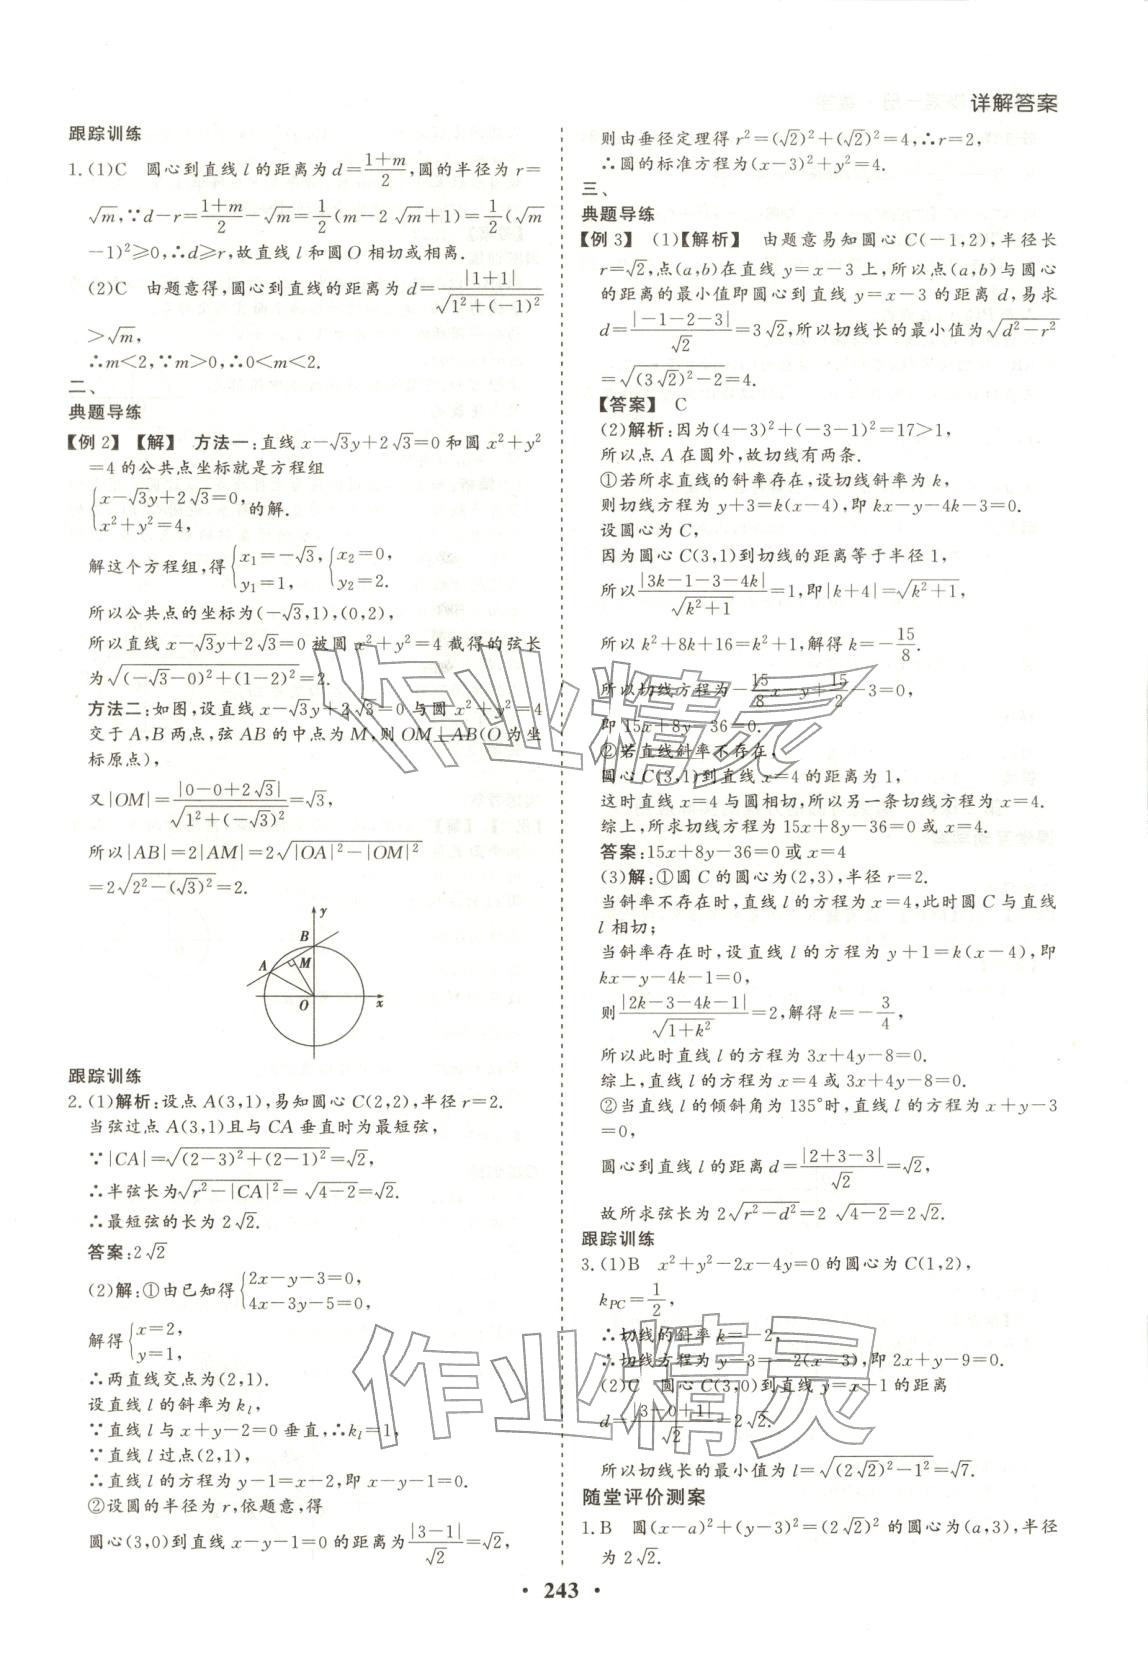 详解答案
跟踪训练
1.(1)C 圆心到直线 l 的距离为 d=\frac{1+m}{2},圆的半径为 r=
√m,∵d-r=\frac{1+m}{2}-√m=\frac{1}{2}(m-2√m+1)=\frac{1}{2}(√m
-1)²≥0,∴d≥r,故直线 l 和圆 O 相切或相离.
(2)C 由题意得,圆心到直线的距离为 d=\frac{|1+1|}{\sqrt{1²+(-1)²}}
>√m,
∴m<2,∵m>0,∴0<m<2.
二、
典题导练
【例 2】【解】 方法一:直线 x-√3y+2√3=0 和圆 x²+y²
=4 的公共点坐标就是方程组
{x-√3y+2√3=0,
x²+y²=4, 的解.
解这个方程组,得{x₁=-√3, {x₂=0,
y₁=1, y₂=2.
所以公共点的坐标为(-√3,1),(0,2),
所以直线 x-√3y+2√3=0 被圆 x²+y²=4 截得的弦长
为\sqrt{(-√3-0)²+(1-2)²}=2.
方法二:如图,设直线 x-√3y+2√3=0 与圆 x²+y²=4
交于 A,B 两点,弦 AB 的中点为 M,则 OM⊥AB(O 为坐
标原点),
又|OM|=\frac{|0-0+2√3|}{\sqrt{1²+(-√3)²}}=√3,
所以|AB|=2|AM|=2\sqrt{|OA|²-|OM|²}
=2\sqrt{2²-(√3)²}=2.
y
B
A
M
O
x
跟踪训练
2.(1)解析:设点 A(3,1),易知圆心 C(2,2),半径 r=2.
当弦过点 A(3,1)且与 CA 垂直时为最短弦,
∵|CA|=\sqrt{(2-3)²+(2-1)²}=√2,
∴半弦长为\sqrt{r²-|CA|²}=\sqrt{4-2}=√2.
∴最短弦的长为 2√2.
答案:2√2
(2)解:①由已知得{2x-y-3=0,
4x-3y-5=0,
解得{x=2,
y=1,
∴两直线交点为(2,1).
设直线 l 的斜率为 k_l,
∵直线 l 与 x+y-2=0 垂直,∴k_l=1,
∵直线 l 过点(2,1),
∴直线 l 的方程为 y-1=x-2,即 x-y-1=0.
②设圆的半径为 r,依题意,得
圆心(3,0)到直线 x-y-1=0 的距离为\frac{|3-1|}{√2}=√2,
则由垂径定理得 r²=(√2)²+(√2)²=4,∴r=2,
∴圆的标准方程为(x-3)²+y²=4.
三、
典题导练
【例 3】 (1)【解析】 由题意易知圆心 C(-1,2),半径长
r=√2,点(a,b)在直线 y=x-3 上,所以点(a,b)与圆心
的距离的最小值即圆心到直线 y=x-3 的距离 d,易求
d=\frac{|-1-2-3|}{√2}=3√2,所以切线长的最小值为\sqrt{d²-r²}
=\sqrt{(3√2)²-2}=4.
【答案】 C
(2)解析:因为(4-3)²+(-3-1)²=17>1,
所以点 A 在圆外,故切线有两条.
①若所求直线的斜率存在,设切线斜率为 k,
则切线方程为 y+3=k(x-4),即 kx-y-4k-3=0.
设圆心为 C,
因为圆心 C(3,1)到切线的距离等于半径 1,
所以\frac{|3k-1-3-4k|}{\sqrt{k²+1}}=1,即|k+4|=\sqrt{k²+1},
所以 k²+8k+16=k²+1,解得 k=-\frac{15}{8}.
所以切线方程为-\frac{15}{8}x-y+\frac{15}{2}-3=0,
即 15x+8y-36=0.
②若直线斜率不存在,
圆心 C(3,1)到直线 x=4 的距离为 1,
这时直线 x=4 与圆相切,所以另一条切线方程为 x=4.
综上,所求切线方程为 15x+8y-36=0 或 x=4.
答案:15x+8y-36=0 或 x=4
(3)解:①圆 C 的圆心为(2,3),半径 r=2.
当斜率不存在时,直线 l 的方程为 x=4,此时圆 C 与直线
l 相切;
当斜率存在时,设直线 l 的方程为 y+1=k(x-4),即
kx-y-4k-1=0,
则\frac{|2k-3-4k-1|}{\sqrt{1+k²}}=2,解得 k=-\frac{3}{4},
所以此时直线 l 的方程为 3x+4y-8=0.
综上,直线 l 的方程为 x=4 或 3x+4y-8=0.
②当直线 l 的倾斜角为 135°时,直线 l 的方程为 x+y-3
=0,
圆心到直线 l 的距离 d=\frac{|2+3-3|}{√2}=√2,
故所求弦长为 2\sqrt{r²-d²}=2\sqrt{4-2}=2√2.
跟踪训练
3.(1)B x²+y²-2x-4y=0 的圆心为 C(1,2),
k_{PC}=\frac{1}{2},
∴切线的斜率 k=-2,
∴切线方程为 y-3=-2(x-3),即 2x+y-9=0.
(2)C 圆心 C(3,0)到直线 y=x+1 的距离
d=\frac{|3-0+1|}{√2}=2√2.
所以切线长的最小值为 l=\sqrt{(2√2)²-1²}=√7.
随堂评价测案
1.B 圆(x-a)²+(y-3)²=(2√2)² 的圆心为(a,3),半径
为 2√2.
· 243 ·
作业精灵
作业精灵